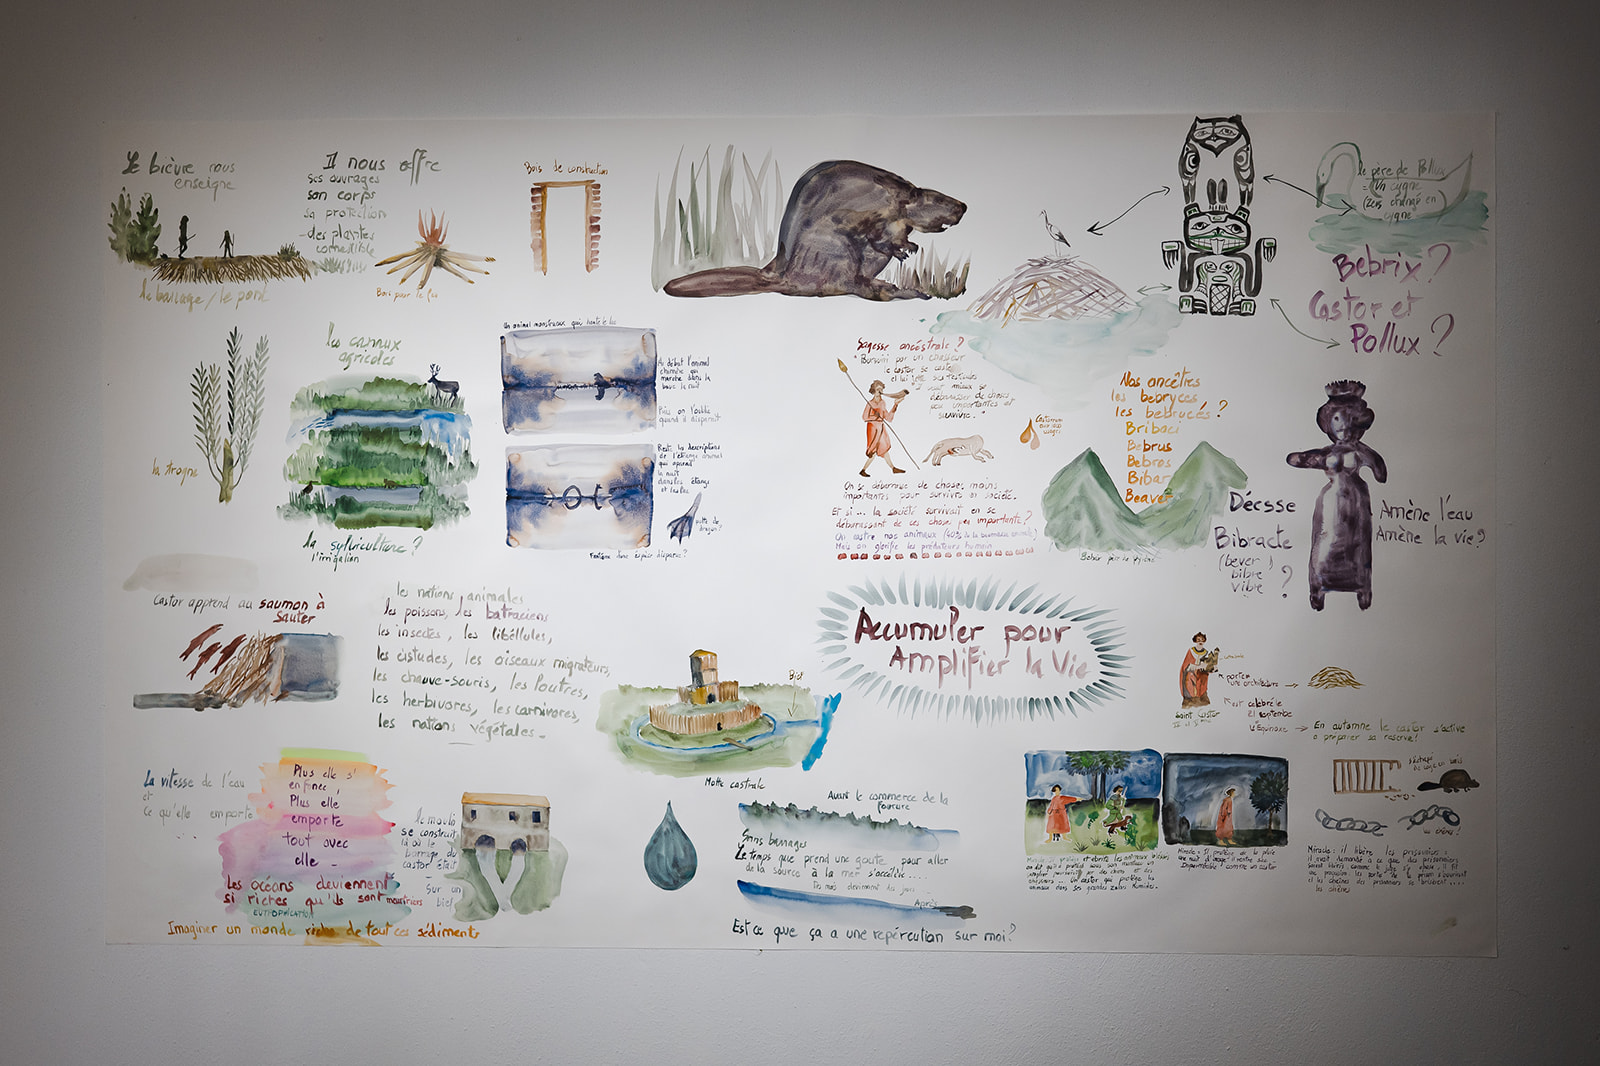 Le bièvre nous
enseigne
le barrage / le pont
Il nous offre
ses ouvrages
son corps
sa protection
- des plantes
comestible
Bois pour le feu
Bois de construction
le père de Pollux
= Un cygne
(Zeus changé en
cygne
Bebrix ?
Castor et
Pollux ?
la trogne
les canaux
agricoles
la sylviculture ?
l'irrigation
Un animal monstrueux qui hante le lac
Au début l'animal
chimère qui
marche dans la
boue la nuit
Puis on l'oublie
quand il disparait
Reste les descriptions
de l'étrange animal
qui apparait
la nuit
dans les étangs
et lacs
patte de
dragon ?
Fantôme d'une espèce disparue ?
Sagesse ancéstrale ?
"Poursuivi par un chasseur
le castor se castre
et lui jette ses testicules
Il vaut mieux se
débarrasser de choses
peu importantes et
survivre."
Castoreum
aux 1000
usages
On se débarrasse de choses moins
importantes pour survivre en société.
Et si ... la société survivait en se
débarrassant de ces choses peu importantes ?
On castre nos animaux (40% de la biomasse animale)
Mais on glorifie les prédateurs humain
Nos ancêtres
les bebryces
les bebrucés ?
Bribaci
Bebrus
Bebros
Bibar
Beaver
Bebrix père de Pyrène
Déesse
Bibracte
(bever)
bibre
vibre ?
Amène l'eau
Amène la vie ?
Castor apprend au saumon à
Sauter
les nations animales
les poissons, les batraciens
les insectes, les libéllules,
les cistudes, les oiseaux migrateurs,
les chauve-souris, les loutres,
les herbivores, les carnivores,
les nations végétales.
Bief
Motte castrale
Accumuler pour
Amplifier la Vie
porter
une architecture
Saint Castor
est célébré le
21 septembre
L'Equinoxe
En automne le castor s'active
à préparer sa réserve !
La vitesse de l'eau
et
ce qu'elle emporte
...
Plus elle s'
enfonce,
Plus elle
emporte
tout avec
elle -
Les océans deviennent
si riches qu'ils sont meurtriers
EUTROPHICATION
Imaginer un monde riche de tout ces sédiments
le moulin
se construit
là où le
barrage du
castor était
Sur un
bief
Avant le commerce de la
fourrure
Sans barrages
Le temps que prend une goutte pour aller
de la source à la mer s'accélère....
Des mois deviennent des jours
Après
Est ce que ça a une repércution sur moi ?
Miracle : Il protège de la pluie
Imperméable ! comme un castor
Miracle : il libère les prisonniers :
il avait demandé à ce que des prisonniers
soient libérés